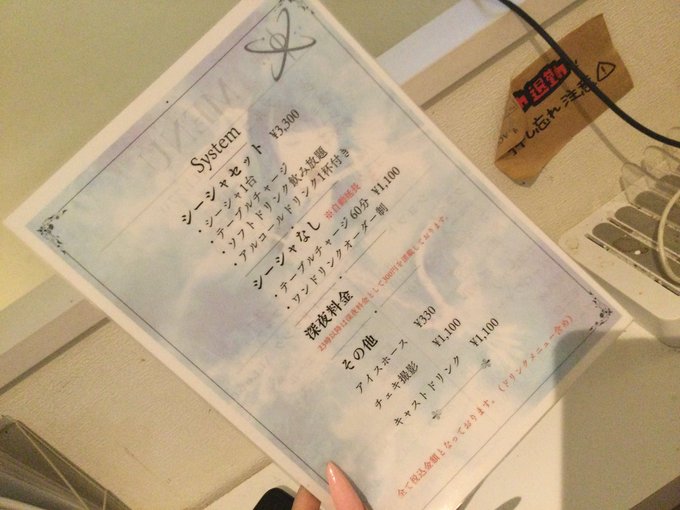 MENU
System
シーシャセット ¥3,300
・シーシャ1台
・テーブルチャージ
・ソフトドリンク飲み放題
・アルコールドリンク1杯付き
シーシャなし ※自動延長
・テーブルチャージ 60分 ¥1,100
・ワンドリンクオーダー制
深夜料金
23時以降は深夜料金として300円を頂戴しております。
その他
アイスホース ¥330
チェキ撮影 ¥1,100
キャストドリンク ¥1,100
全て税込金額となっております。(ドリンクメニュー含め)
忘れ注意⚠